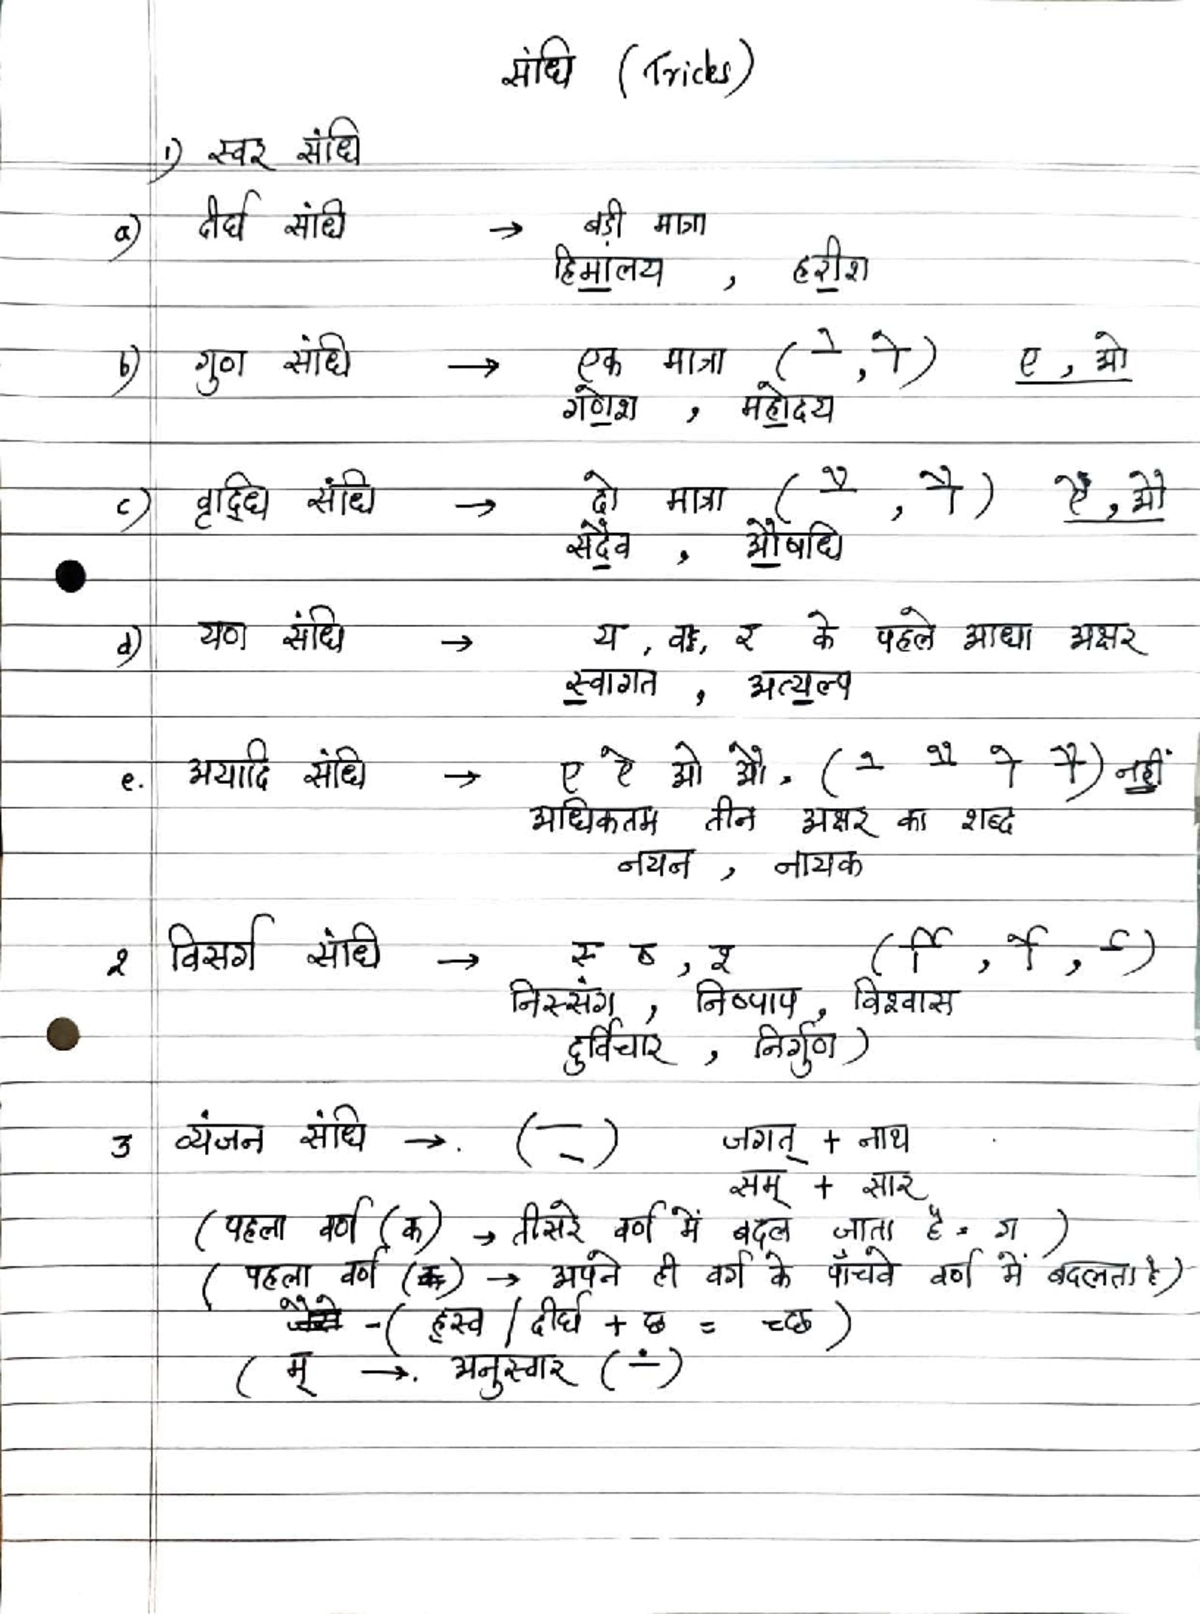 संधि (Tricks)
1) स्वर संधि
a) दीर्घ संधि → बड़ी मात्रा
हिमालय , हरीश
b) गुण संधि → एक मात्रा ( े , ो ) ए , ओ
गणेश , महोदय
c) वृद्धि संधि → दो मात्रा ( ै , ौ ) ऐ , औ
सदैव , औषधि
d) यण संधि → य , व , र के पहले आधा अक्षर
स्वागत , अत्यल्प
e. अयादि संधि → ए ऐ ओ औ , ( े ै ो ौ ) नहीं
अधिकतम तीन अक्षर का शब्द
नयन , नायक
2 विसर्ग संधि → स् ष् , श्
निस्संग , निष्पाप , विश्वास
दुर्विचार , निर्गुण )
3 व्यंजन संधि → . ( ् ) जगत् + नाथ
सम् + सार
( पहला वर्ण (क) → तीसरे वर्ण में बदल जाता है = ग )
( पहला वर्ण (क) → अपने ही वर्ग के पाँचवे वर्ण में बदलता है )
जैसे - ( हृस्व / दीर्घ + छ = च्छ )
( म् → . अनुस्वार ( ं )